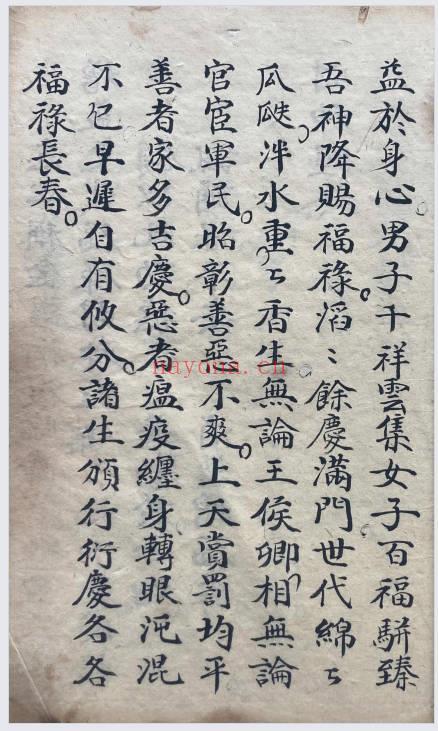 益於身心男子千祥雲集女子百福駢臻
吾神降賜福祿。滔〻餘慶滿門世代綿〻
瓜瓞。泮水重〻香生無論王侯卿相。無論
官宦軍民。昭彰善惡不爽。上天賞罰均平
善者家多吉慶。惡者瘟疫纏身轉眼沌混
不早遲自有攸分。諸生頒行衍慶各各
福祿長春。
nayona.cn